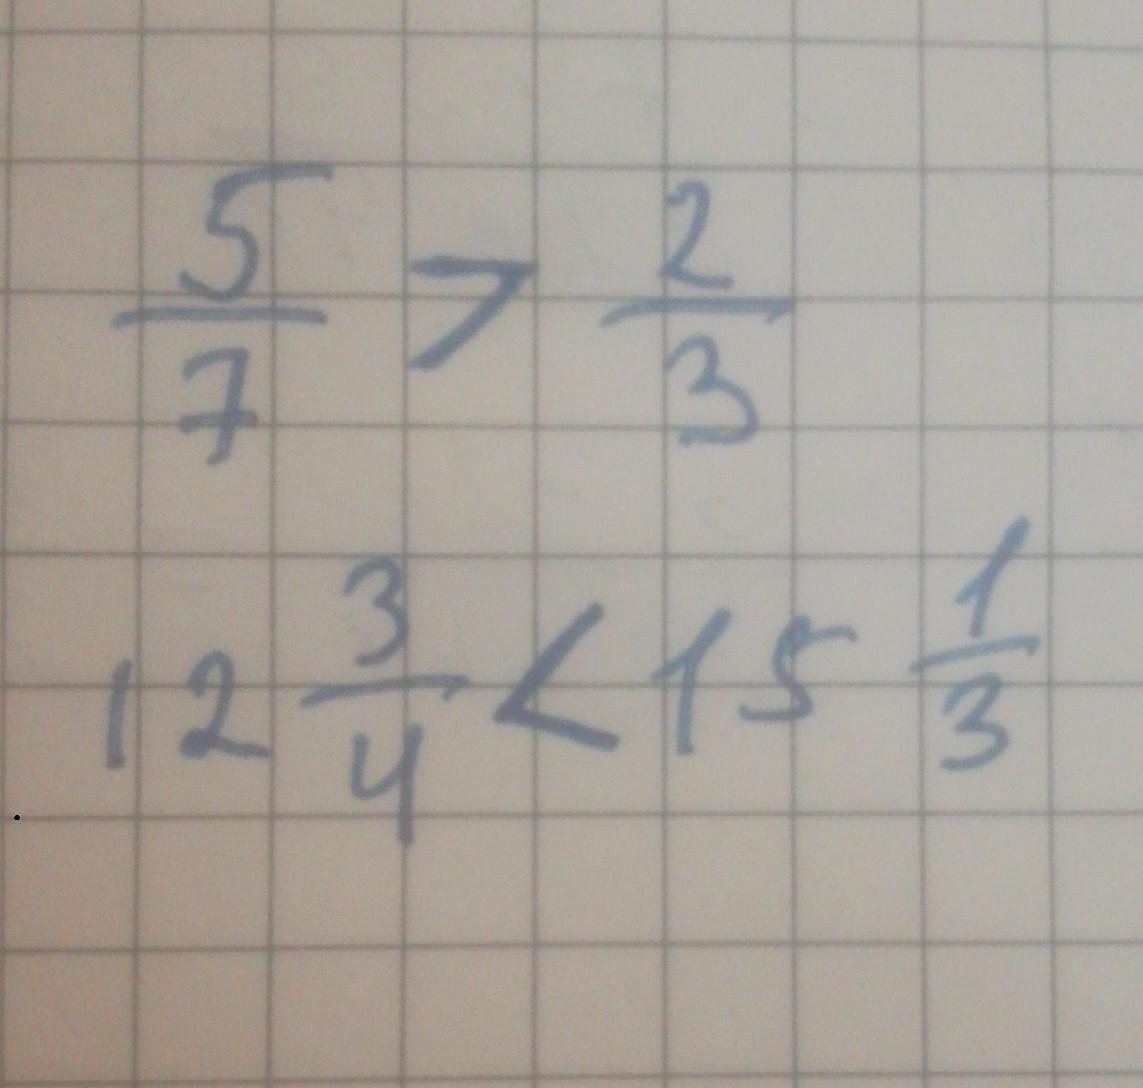 5/7 > 2/3
12 3/4 < 15 1/3